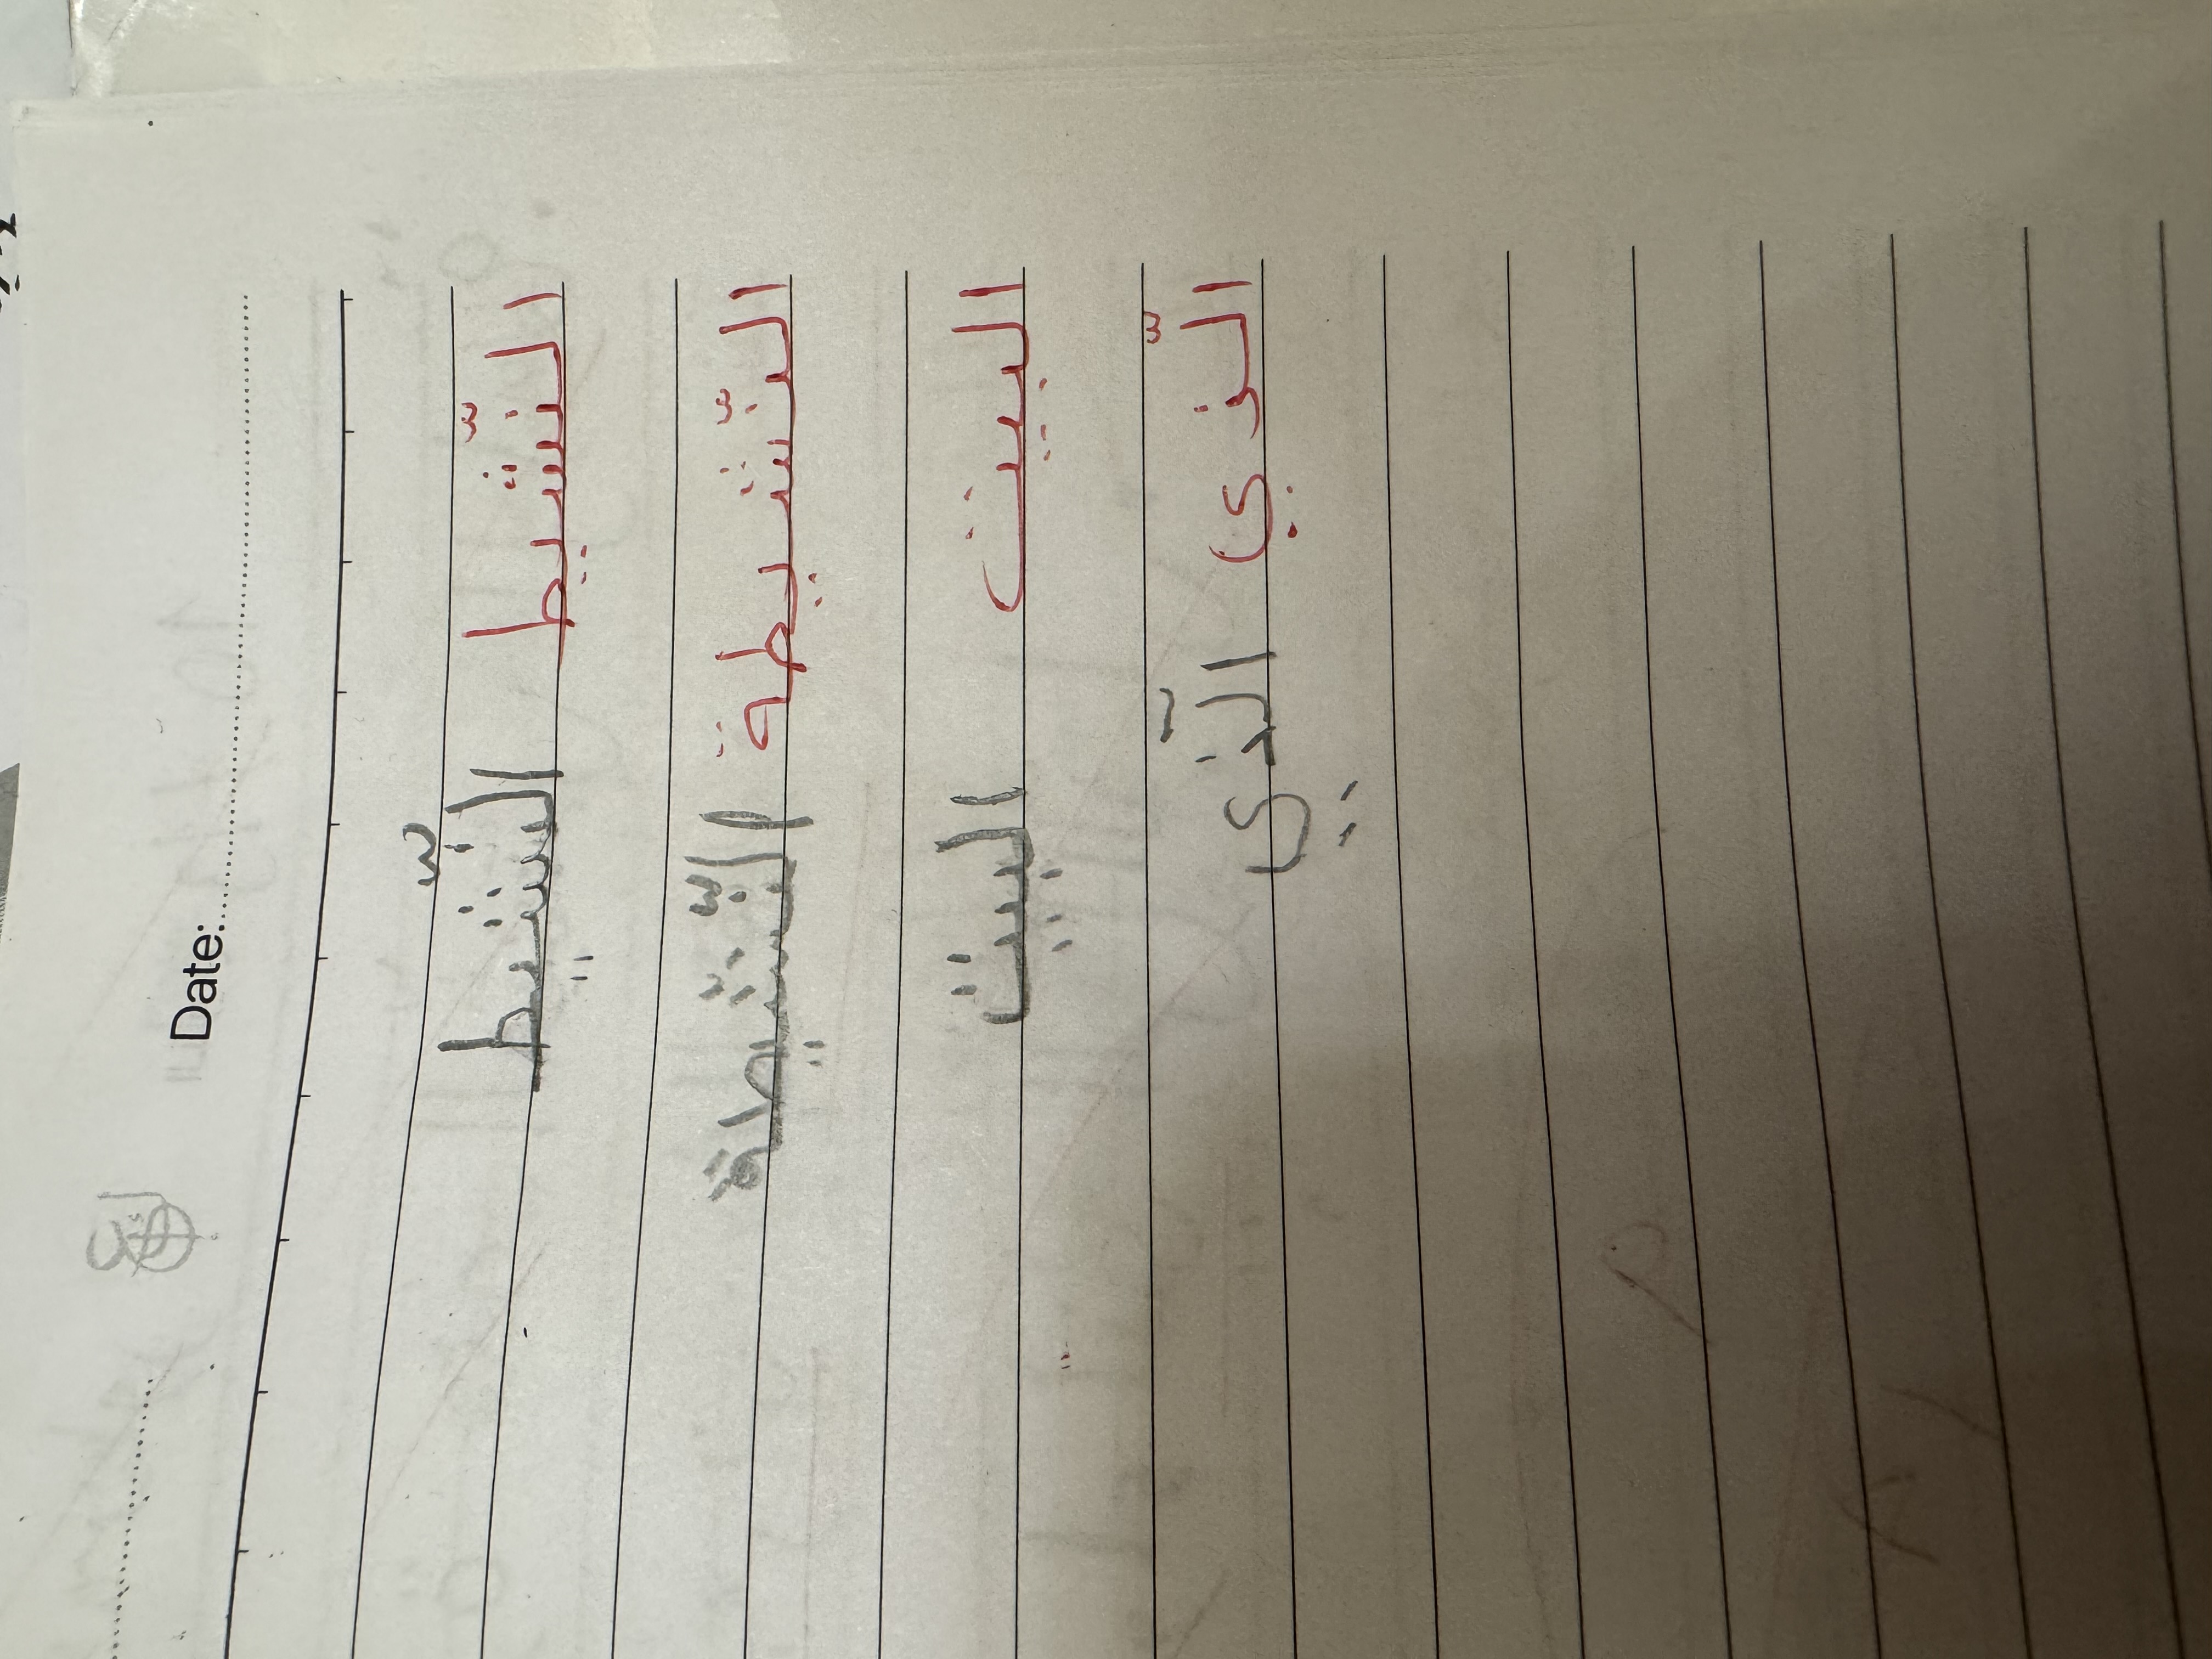 Date:
النّشيط النّشيط
النّشيطة النّشيطة
البيت البيت
الّذي الّذي